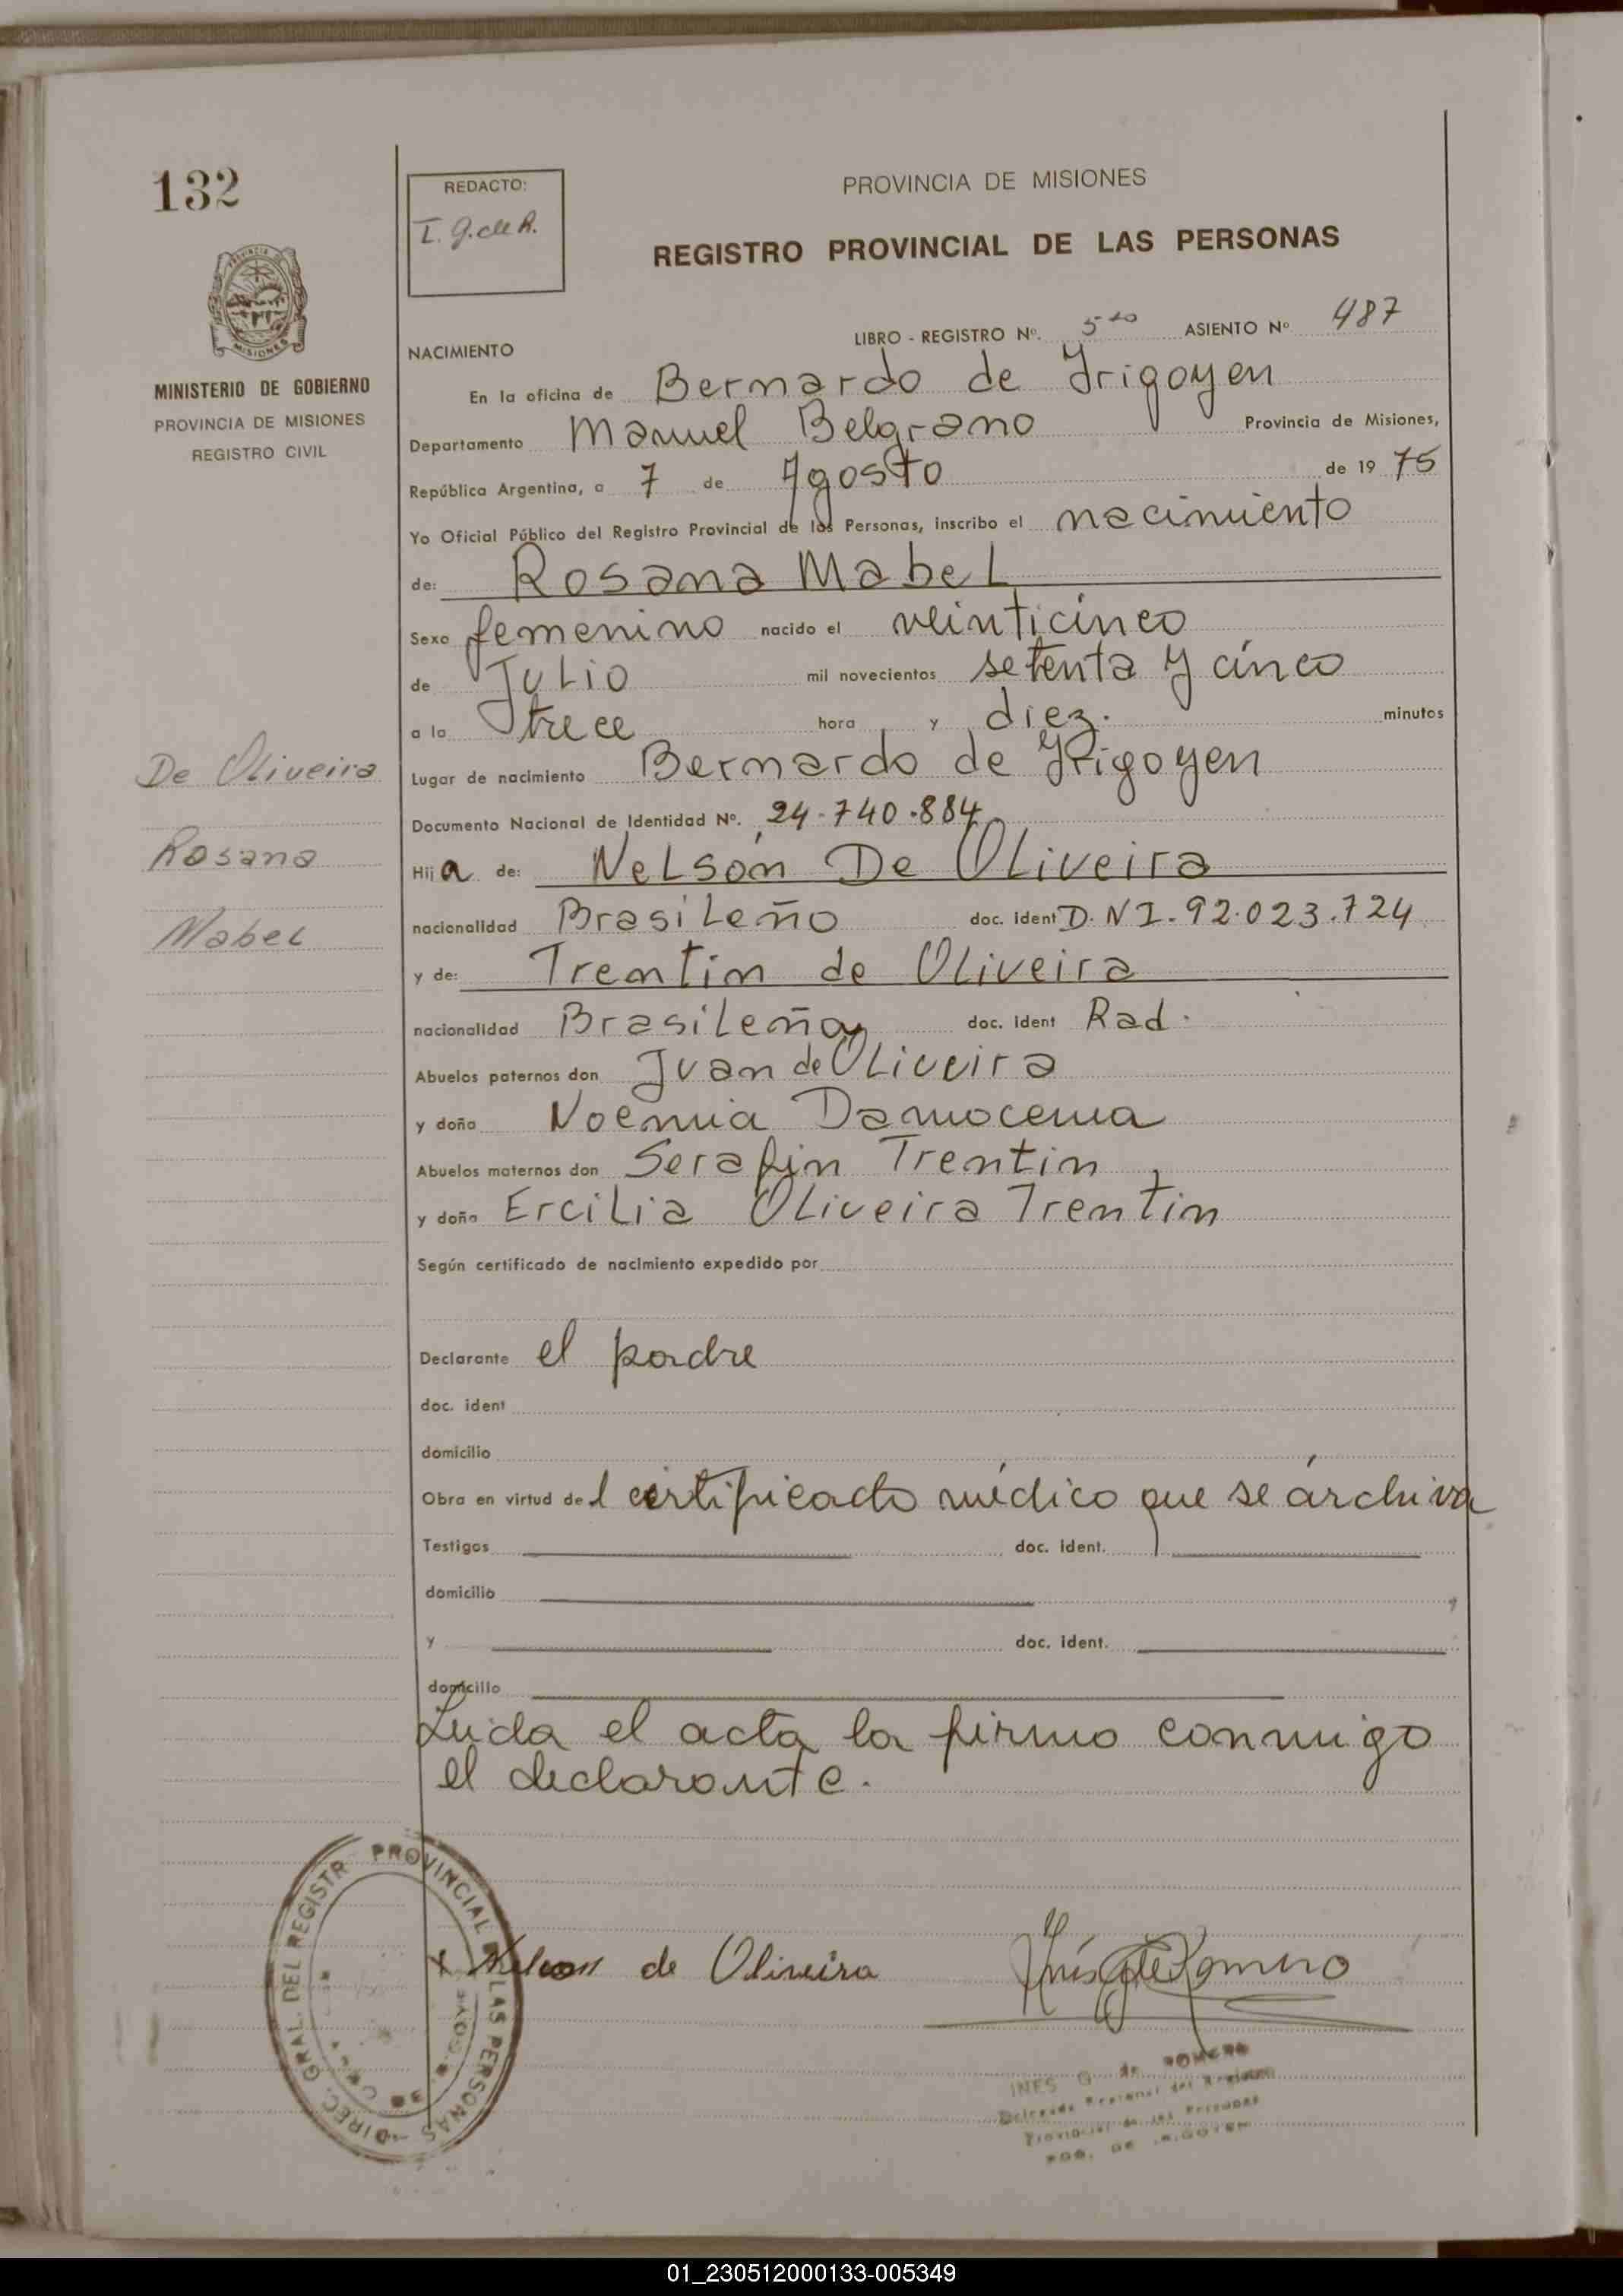 132
REDACTO:
I. G. de R.
PROVINCIA DE MISIONES
REGISTRO PROVINCIAL DE LAS PERSONAS
MISIONES
MINISTERIO DE GOBIERNO
PROVINCIA DE MISIONES
REGISTRO CIVIL
LIBRO - REGISTRO Nº. 5to ASIENTO Nº 487
NACIMIENTO
En la oficina de Bernardo de Irigoyen
Departamento Manuel Belgrano Provincia de Misiones,
República Argentina, a 7 de Agosto de 19 75
Yo Oficial Público del Registro Provincial de las Personas, inscribo el nacimiento
de: Rosana Mabel
Sexo femenino nacido el veinticinco
de Julio mil novecientos setenta y cinco
a la trece hora y diez. minutos
De Oliveira
Rosana
Mabel
Lugar de nacimiento Bernardo de Irigoyen
Documento Nacional de Identidad Nº. 24.740.884
Hija de: Nelson De Oliveira
nacionalidad Brasileño doc. ident D.N I. 92.023.724
y de: Trentin de Oliveira
nacionalidad Brasileña doc. ident Rad.
Abuelos paternos don Juan de Oliveira
y doña Noemia Damocena
Abuelos maternos don Serafin Trentin
y doña Ercilia Oliveira Trentin
Según certificado de nacimiento expedido por
Declarante el padre
doc. ident
domicilio
Obra en virtud del certificado médico que se archiva
Testigos doc. ident.
domicilio
y doc. ident.
domicilio
Leida el acta la firmo conmigo
el declarante.
DIREC. GRAL. DEL REGISTR PROVINCIAL LAS PERSONAS
x Nelson de Oliveira Inés G de Romero
INES G. de ROMERO
Provincial de las Personas
01_230512000133-005349